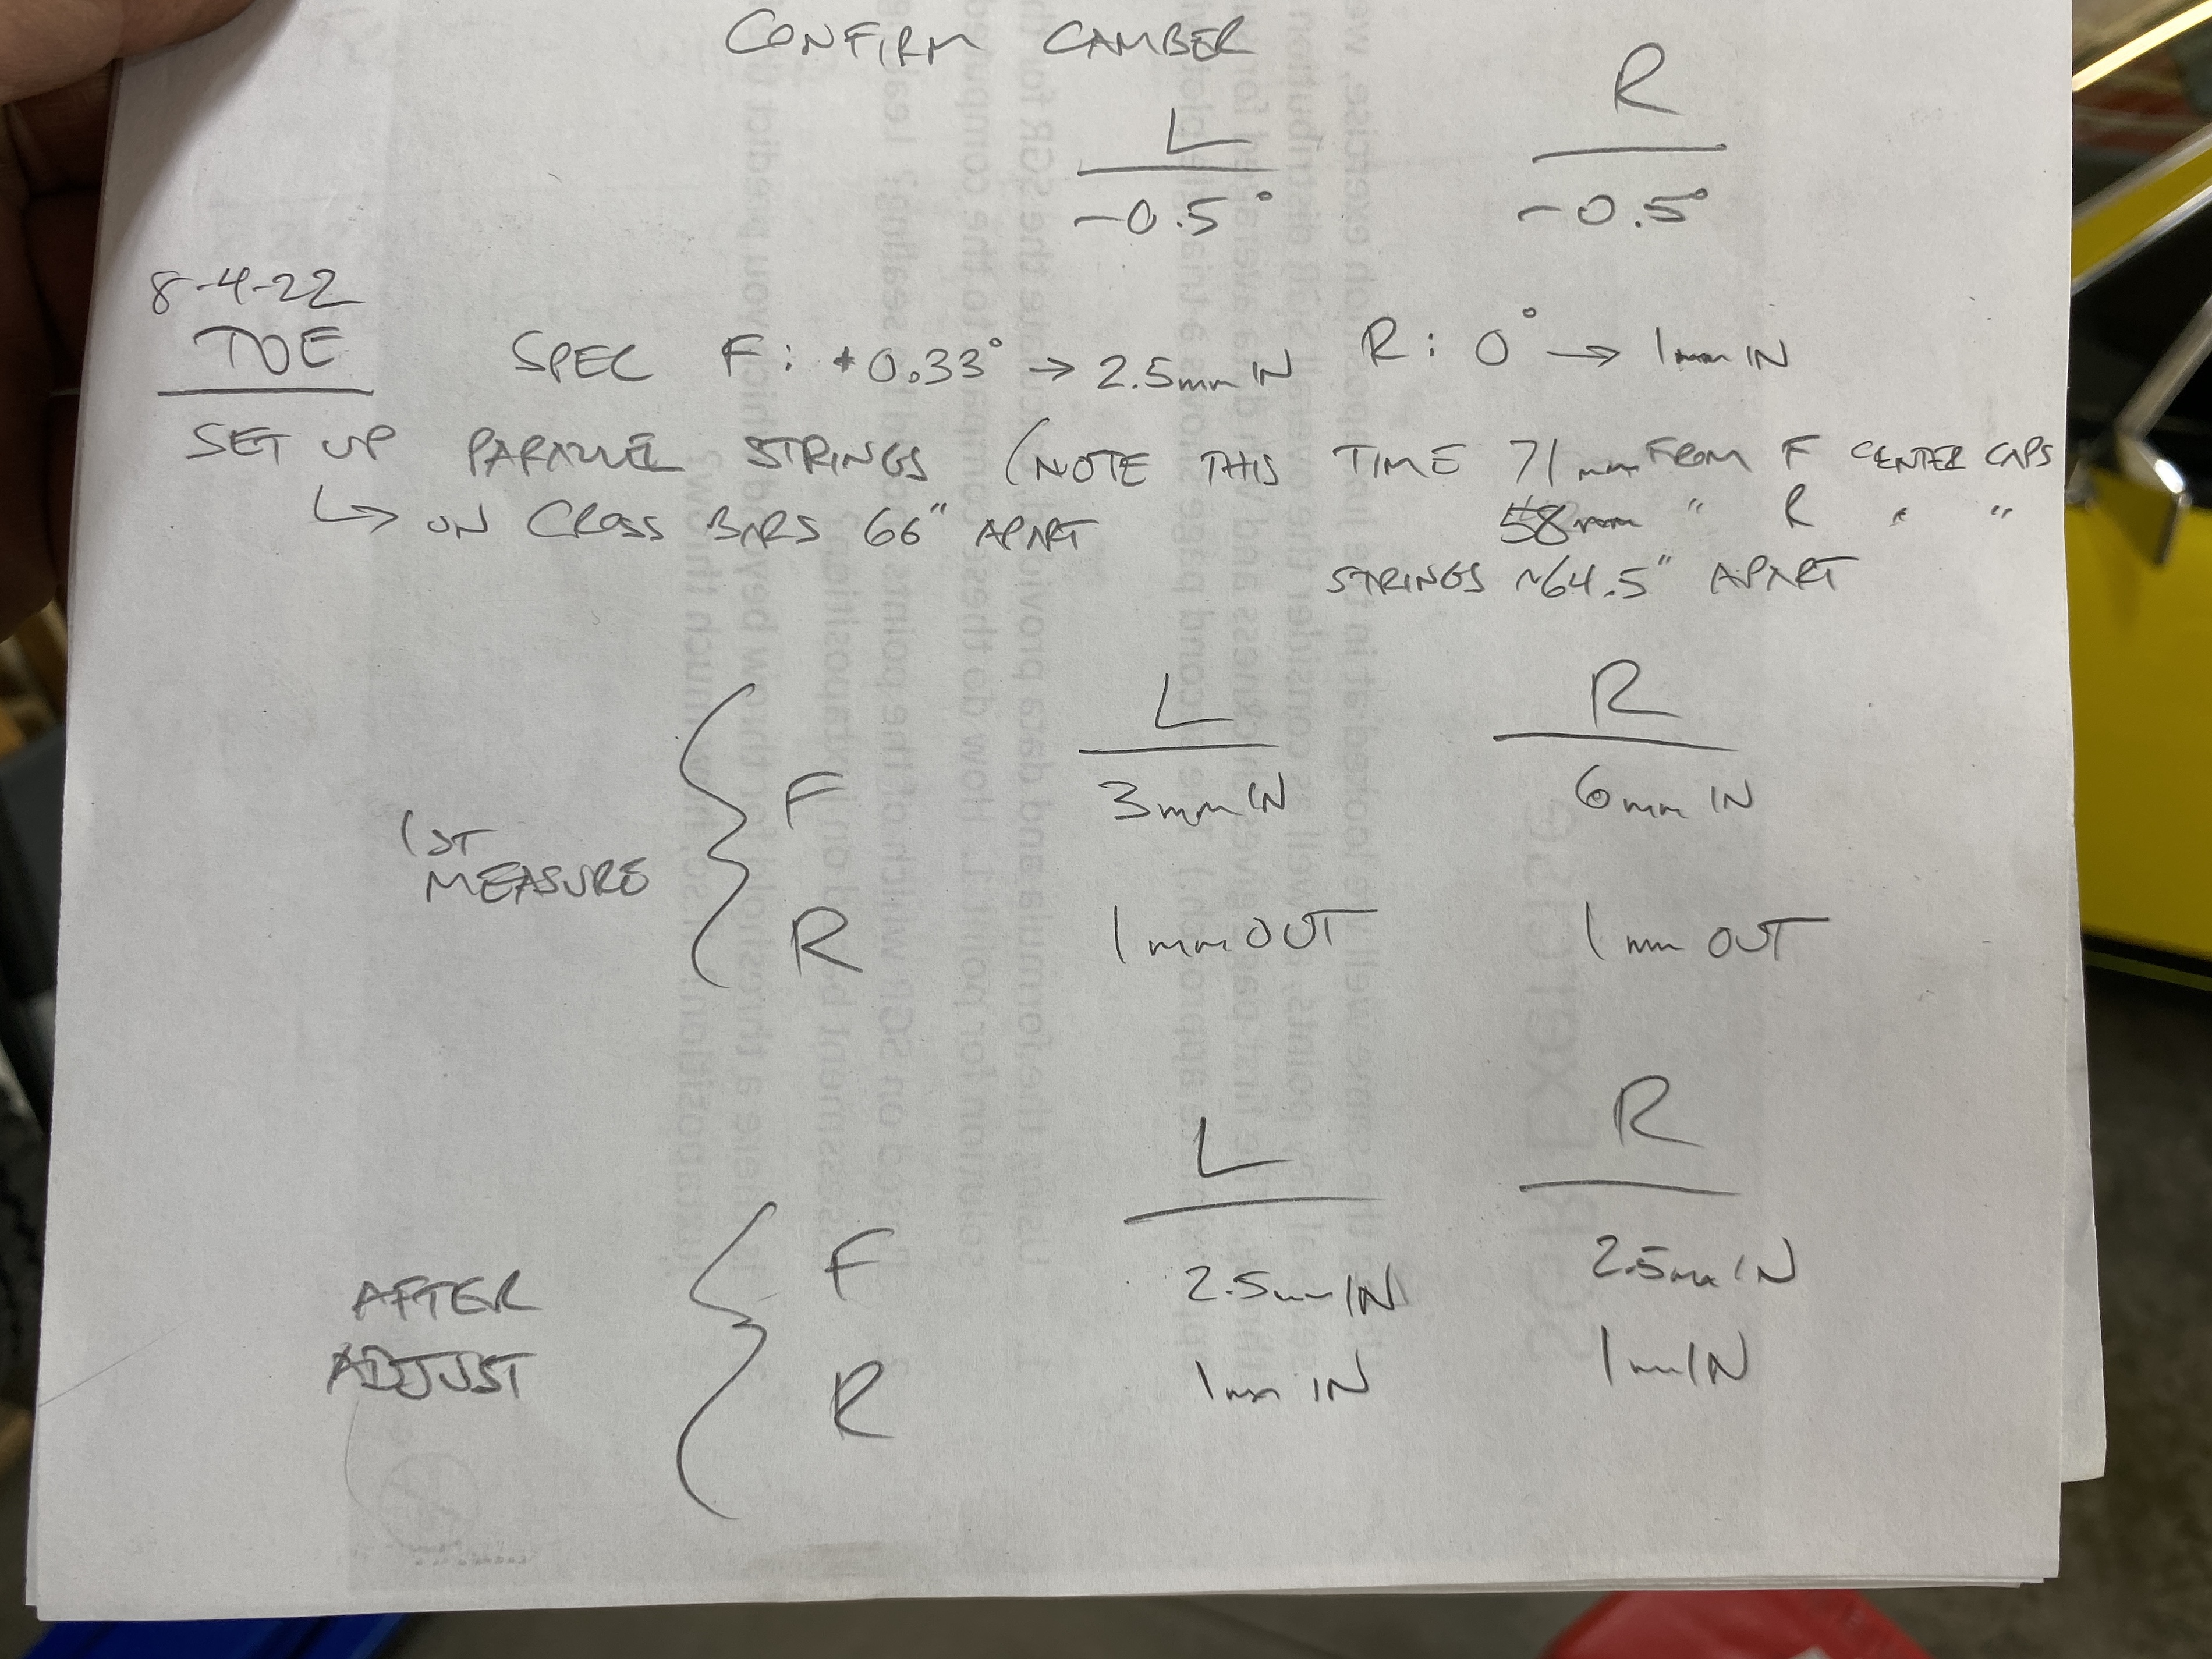 CONFIRM CAMBER
L R
-0.5° -0.5°
8-4-22
TOE SPEC F: +0.33° → 2.5mm IN R: 0° → 1mm IN
SET UP PARALLEL STRINGS (NOTE THIS TIME 71mm FROM F CENTER CAPS
↳ ON CROSS BARS 66" APART 58mm " R " "
STRINGS ~64.5" APART
L R
F 3mm IN 6mm IN
1ST
MEASURE
R 1mm OUT 1mm OUT
L R
F 2.5mm IN 2.5mm IN
AFTER
ADJUST
R 1mm IN 1mm IN